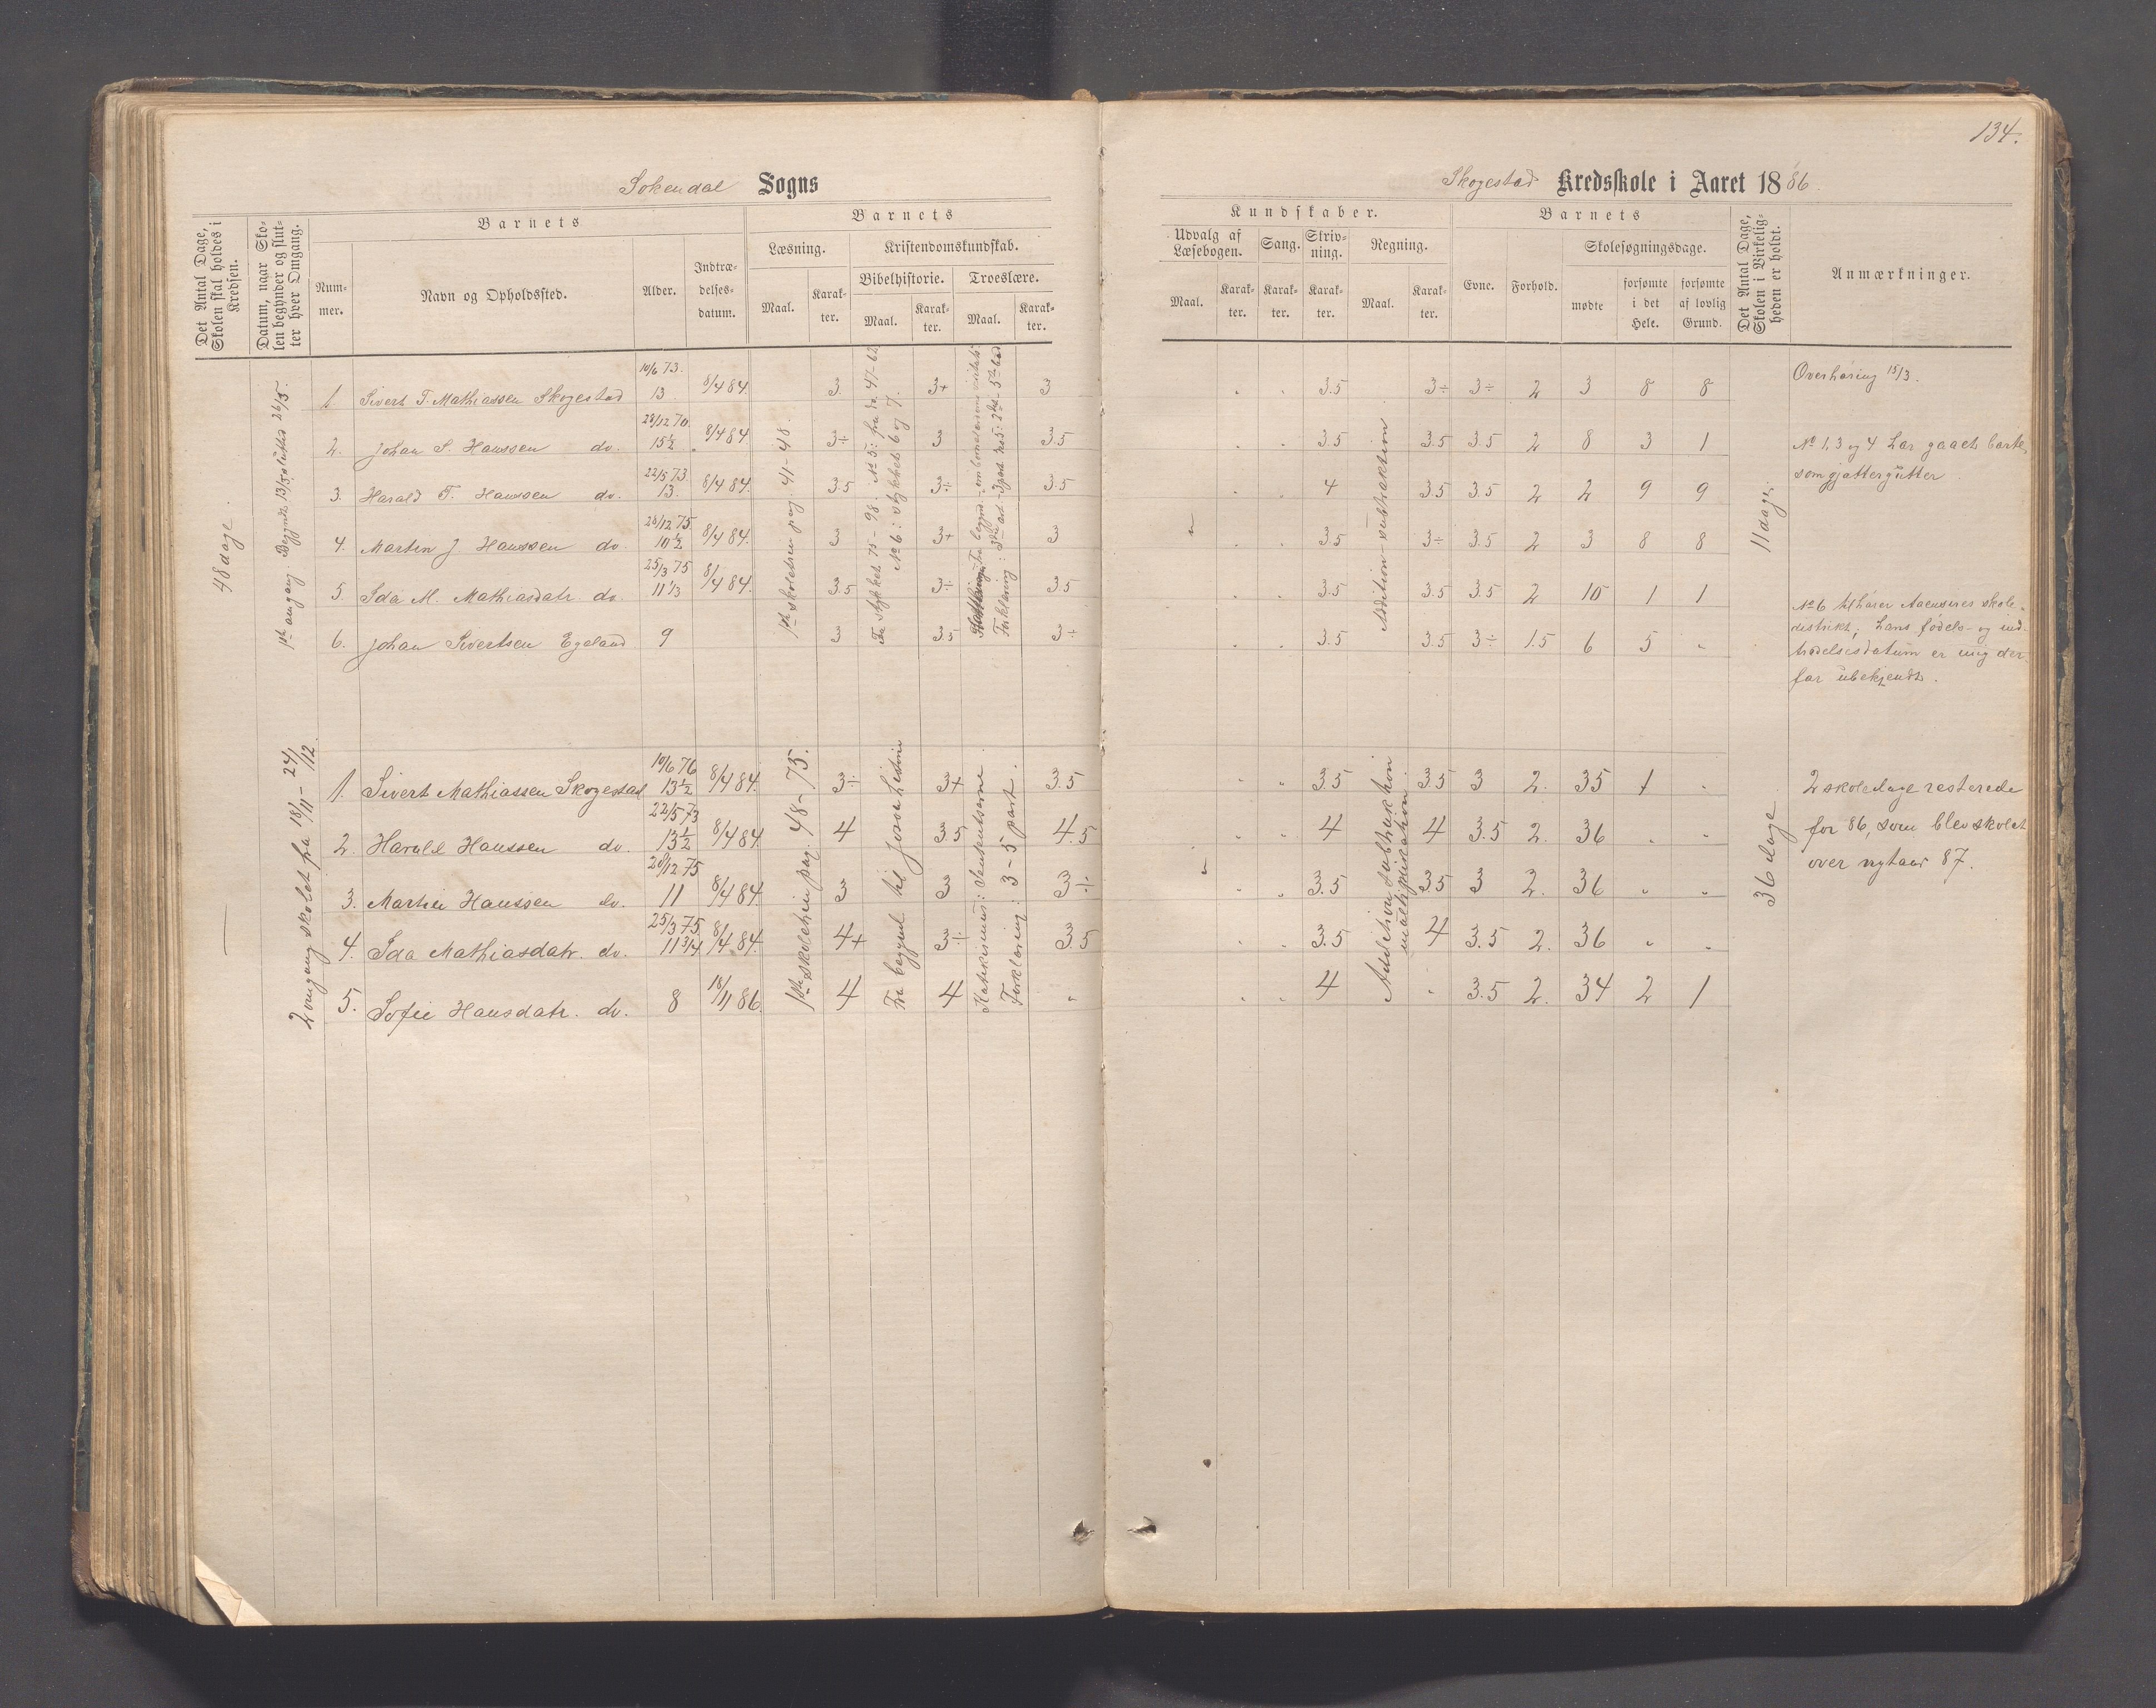 134.
Sokendal Sogns
Skogestad Kredsskole i Aaret 1886.
Det Antal Dage, Skolen skal holdes i Kredsen.
Datum, naar Skolen begynder og slutter hver Omgang.
Barnets
Nummer.
Navn og Opholdssted.
Alder.
Indtrædelsesdatum.
Barnets
Læsning.
Kristendomskundskab.
Bibelhistorie.
Troeslære.
Maal.
Karakter.
Maal.
Karakter.
Maal.
Karakter.
Kundskaber.
Udvalg af Læsebogen.
Sang.
Skrivning.
Regning.
Maal.
Karakter.
Karakter.
Karakter.
Maal.
Karakter.
Barnets
Evne.
Forhold.
Skolesøgningsdage.
mødte
forsømte i det Hele.
forsømte af lovlig Grund.
Det Antal Dage, Skolen i Virkeligheden er holdt.
Anmærkninger.
48 dage.
1ste omgang. Begyndt 13/5 slutted 26/5.
1. Sivert T. Mathiassen Skogestad 10/6 73. 13 8/4 84. 3 3+ 3 " " 3.5 3÷ 3÷ 2 3 8 8
2. Johan S. Hanssen do. 28/12 70. 15½ 8/4 84. 3÷ 3 3.5 " " 3.5 3.5 3.5 2 8 3 1
3. Harald T. Hanssen do. 22/5 73. 13. 8/4 84. 3.5 3÷ 3.5 " " 4 3.5 3.5 2 2 9 9
4. Martin J. Hanssen do. 28/12 75. 10½ 8/4 84. 3 3+ 3 " " " 3.5 3÷ 3.5 2 3 8 8
5. Ida M. Mathiasdatr. do. 25/3 75 11⅓ 8/4 84. 3.5 3÷ 3.5 " " 3.5 3.5 3.5 2 10 1 1
6. Johan Sivertsen Egeland 9 3 3.5 3÷ " " 3.5 3.5 3÷ 1.5 6 5 "
1ste skoletrin pag. 41-48.
Fra stykket 75-98. No 5: fra do. 47-62
No 6: stykket 6 og 7.
Forklaring: 3die
Addition - subtraktion.
11 dage.
Overhøring 15/3.
No 1, 3 og 4 har gaaet borte
som gjættergutter.
No 6 tilhører skole-
distrikt; hans fødels- og ind-
trædelsesdatum er mig der
for ubekjendt.
2 omgang skolet fra 18/11 - 24/12.
1. Sivert Mathiassen Skogestad 10/6 76 13½ 8/4 84. 3÷ 3+ 3.5 " " 3.5 3.5 3 2. 35 1 "
2. Harald Hanssen do. 22/5 73 13½ 8/4 84. 4 3.5 4.5 " " 4 4 3.5 2. 36 " "
3. Martin Hanssen do. 28/12 75 11 8/4 84. 3 3 3÷ " " 3.5 3.5 3 2. 36 " "
4. Ida Mathiasdatr. do. 25/3 75 11¾ 8/4 84. 4+ 3÷ 3.5 " " 3.5 4 3.5 2. 36 " "
5. Sofie Hansdatr. do. 8 18/11 86. 4 4 " " " 4 " 3.5 2. 34 2 1
1ste skoletrin pag. 48-73.
Fra begynd. til Josva historie
Katekismus:
Forklaring: 3-5 part.
Addition subtraktion
multiplikation
36 dage
2 skoledage resterede
for 86, som blev skolet
over nytaar 87.